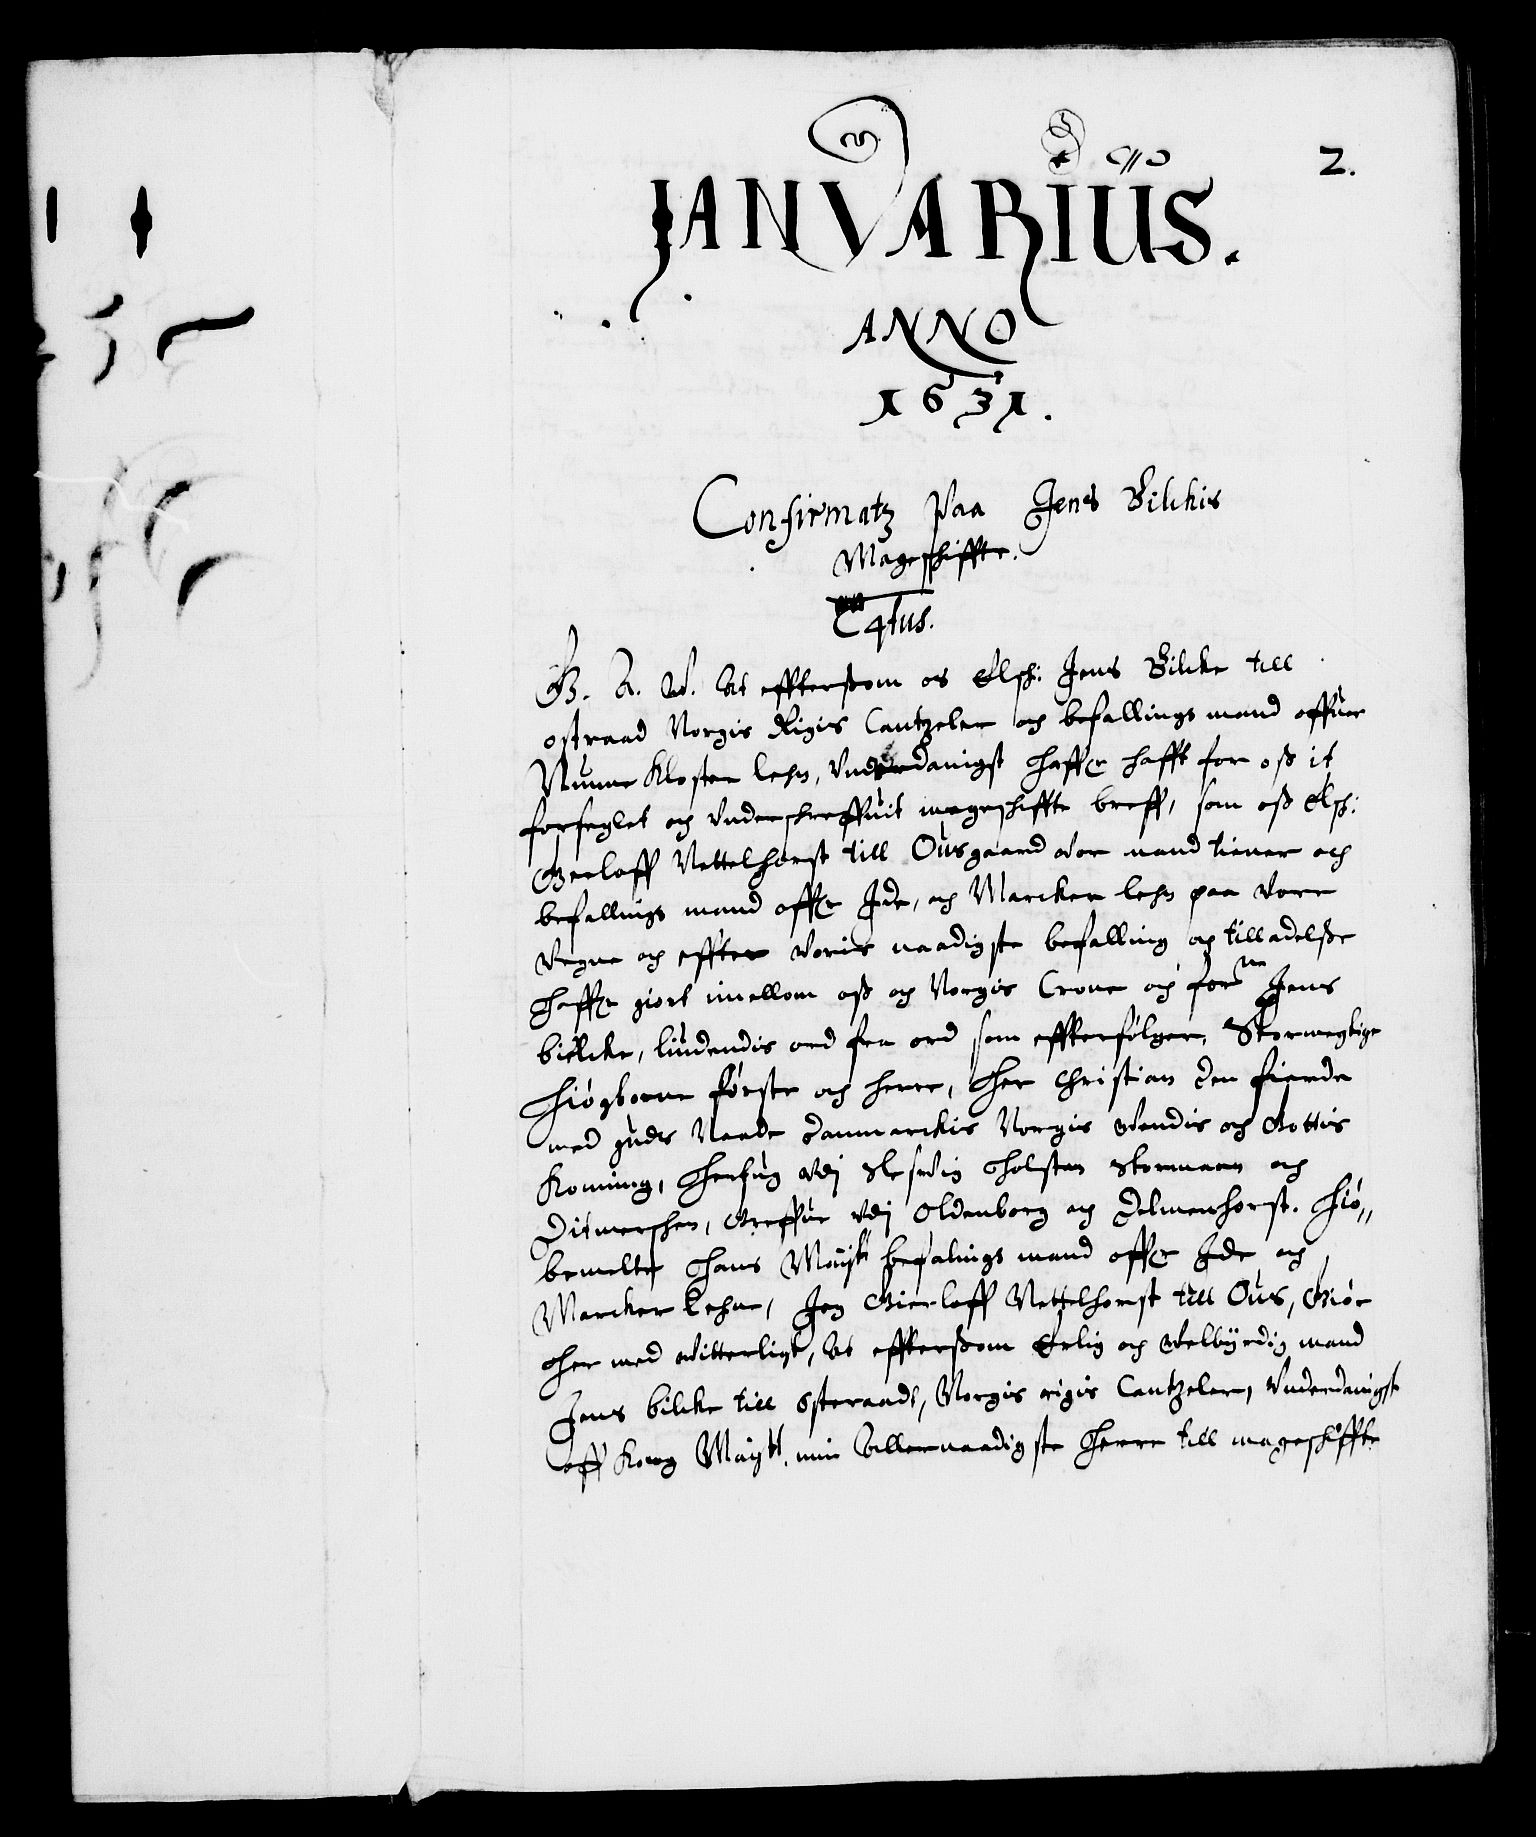 2.
JANVARIUS.
ANNO
1631.
Confirmatz Paa Jens Bilckis
Mageschiffte.
C4tus.
G. A. W. At effterßom os Elsch: Jens Bilcke till
ostraad Norgis Rigis Cantzeler och befallings mand offuer
Nunne Kloster lehn, Underdanigst haffr hafft for oß it
forseglet och Underschreffuit mageschiffte breff, som oß Elsch:
Gerloff Nettelhorst till Ousgaard vor mand tiener och
befallings mand offr Ide, och Marcker lehn paa Vore
Vegne och effter Voris naadigste befalling och tilladelße
haffr giort imellom oß och Norgis Crone och forne Jens
bielcke, liudendis ord fra ord som effterfølger, Stormegtige
Høigborne første och herre, Her Christian den fierde
med guds Naade danmarckis Norgis Wendis och Gottis
Konning, Hertug Vdj Slesvig Holsten Stormarn och
Ditmerschen, Greffue Vdj Oldenborg och Delmenhorst. Høi„
bemelte Hans Maytt befalings mand offr Ide och
Marcker Lehne, Jeg Gierloff Nettelhorst till Ous, Giør
her med vitterligt, At effterßom Erlig och Welbyrdig mand
Jens bilcke till Osteraadt, Norgis rigis Cantzeler, Underdanigst
aff Kong Maytt. min Allernaadigste Herre till mageschiffte